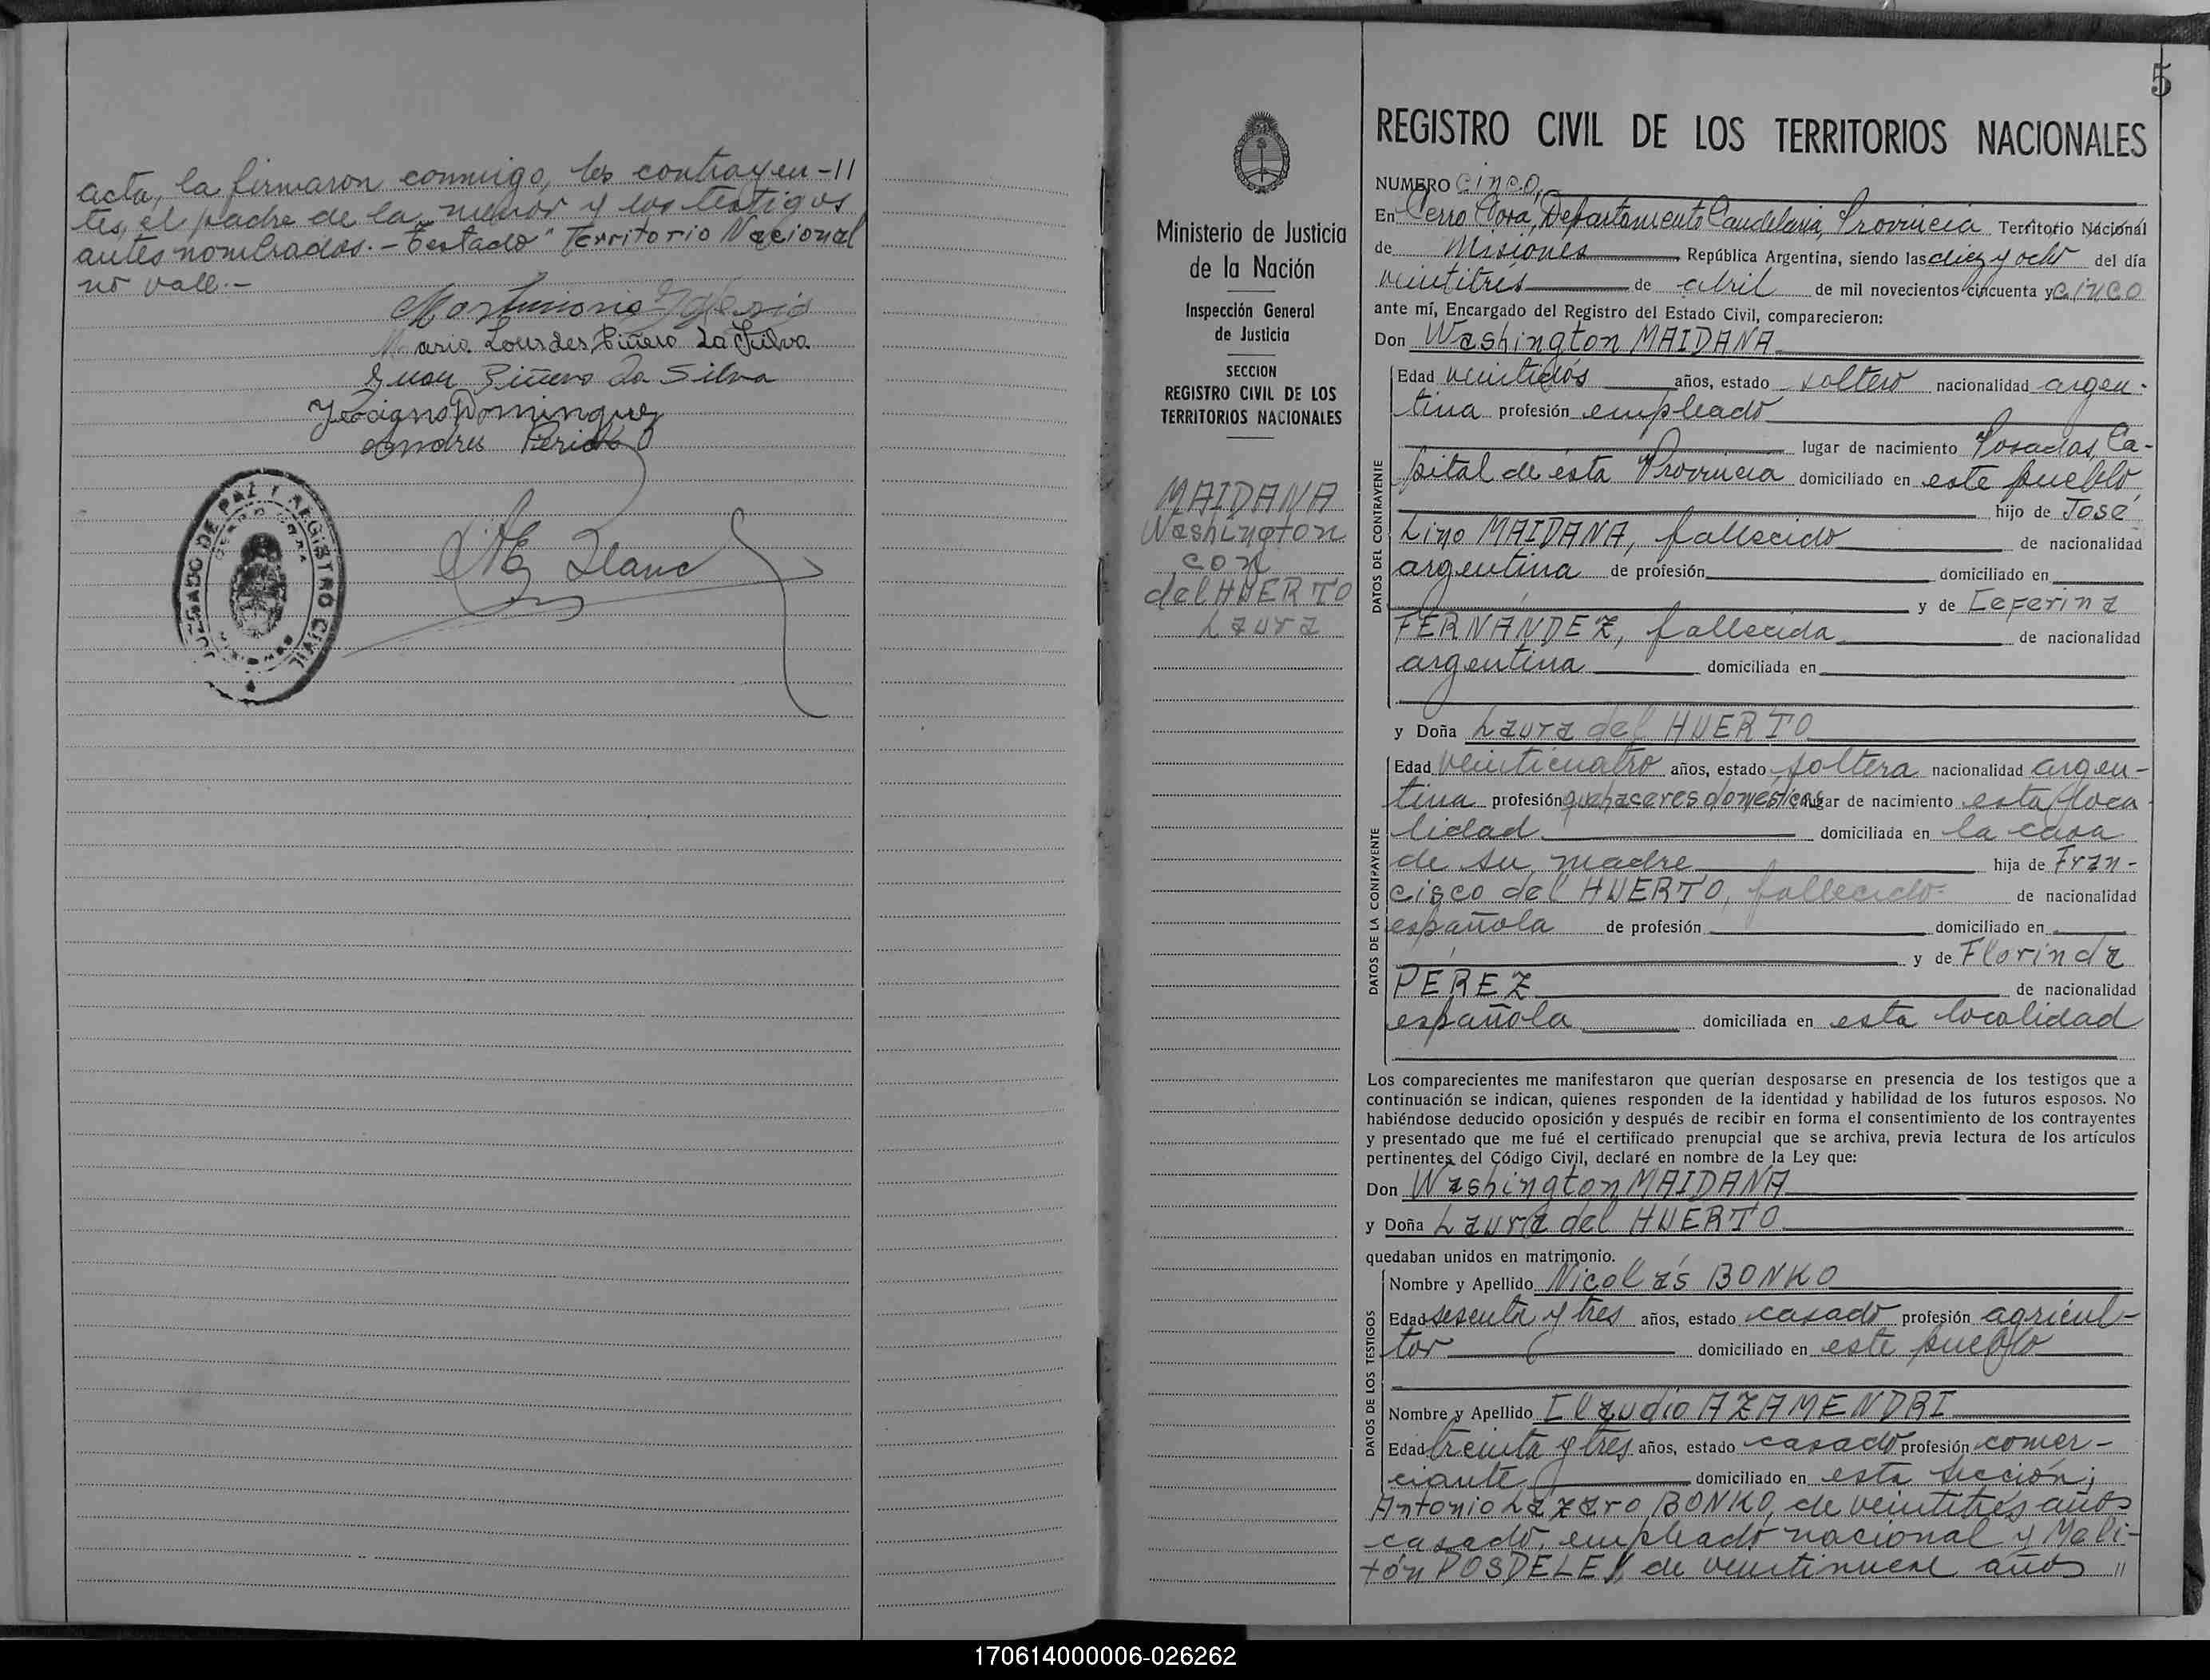 acta, la firmaron conmigo, los contrayen-//
tes, el padre de la menor y los testigos
antes nombrados.- Testado "Territorio Nacional
no vale.-
Maria Lourdes Piñero Da Silva
Juan Piñero Da Silva
Dominguez
Andres
JUZGADO DE PAZ Y REGISTRO CIVIL
5
Ministerio de Justicia
de la Nación
Inspección General
de Justicia
SECCION
REGISTRO CIVIL DE LOS
TERRITORIOS NACIONALES
MAIDANA
Washington
con
del HUERTO
Laura
REGISTRO CIVIL DE LOS TERRITORIOS NACIONALES
NUMERO cinco,
En Cerro Corá, Departamento Candelaria, Provincia Territorio Nacional
de Misiones República Argentina, siendo las diez y ocho del día
veintitrés de abril de mil novecientos cincuenta y cinco
ante mí, Encargado del Registro del Estado Civil, comparecieron:
Don Washington MAIDANA
DATOS DEL CONTRAYENTE
Edad veintidós años, estado soltero nacionalidad argen-
tina profesión empleado
lugar de nacimiento Posadas, Ca-
pital de ésta Provincia domiciliado en este pueblo,
hijo de José
Lino MAIDANA, fallecido de nacionalidad
argentina de profesión domiciliado en
y de Ceferina
FERNÁNDEZ, fallecida de nacionalidad
argentina domiciliada en
y Doña Laura del HUERTO
DATOS DE LA CONTRAYENTE
Edad veinticuatro años, estado soltera nacionalidad argen-
tina profesión quehaceres domésticos lugar de nacimiento esta loca
lidad domiciliada en la casa
de su madre hija de Fran-
cisco del HUERTO, fallecido de nacionalidad
española de profesión domiciliado en
y de Florinda
PÉREZ de nacionalidad
española domiciliada en esta localidad
Los comparecientes me manifestaron que querían desposarse en presencia de los testigos que a
continuación se indican, quienes responden de la identidad y habilidad de los futuros esposos. No
habiéndose deducido oposición y después de recibir en forma el consentimiento de los contrayentes
y presentado que me fué el certificado prenupcial que se archiva, previa lectura de los artículos
pertinentes del Código Civil, declaré en nombre de la Ley que:
Don Washington MAIDANA
y Doña Laura del HUERTO
quedaban unidos en matrimonio.
DATOS DE LOS TESTIGOS
Nombre y Apellido Nicolás BONKO
Edad sesenta y tres años, estado casado profesión agricul-
tor domiciliado en este pueblo
Nombre y Apellido Claudio AZAMENDRI
Edad treinta y tres años, estado casado profesión comer-
ciante domiciliado en esta sección;
Antonio Lázaro BONKO, de veintitrés años
casado, empleado nacional y Meli-
tón POSDELEY de veintinueve años //
170614000006-026262